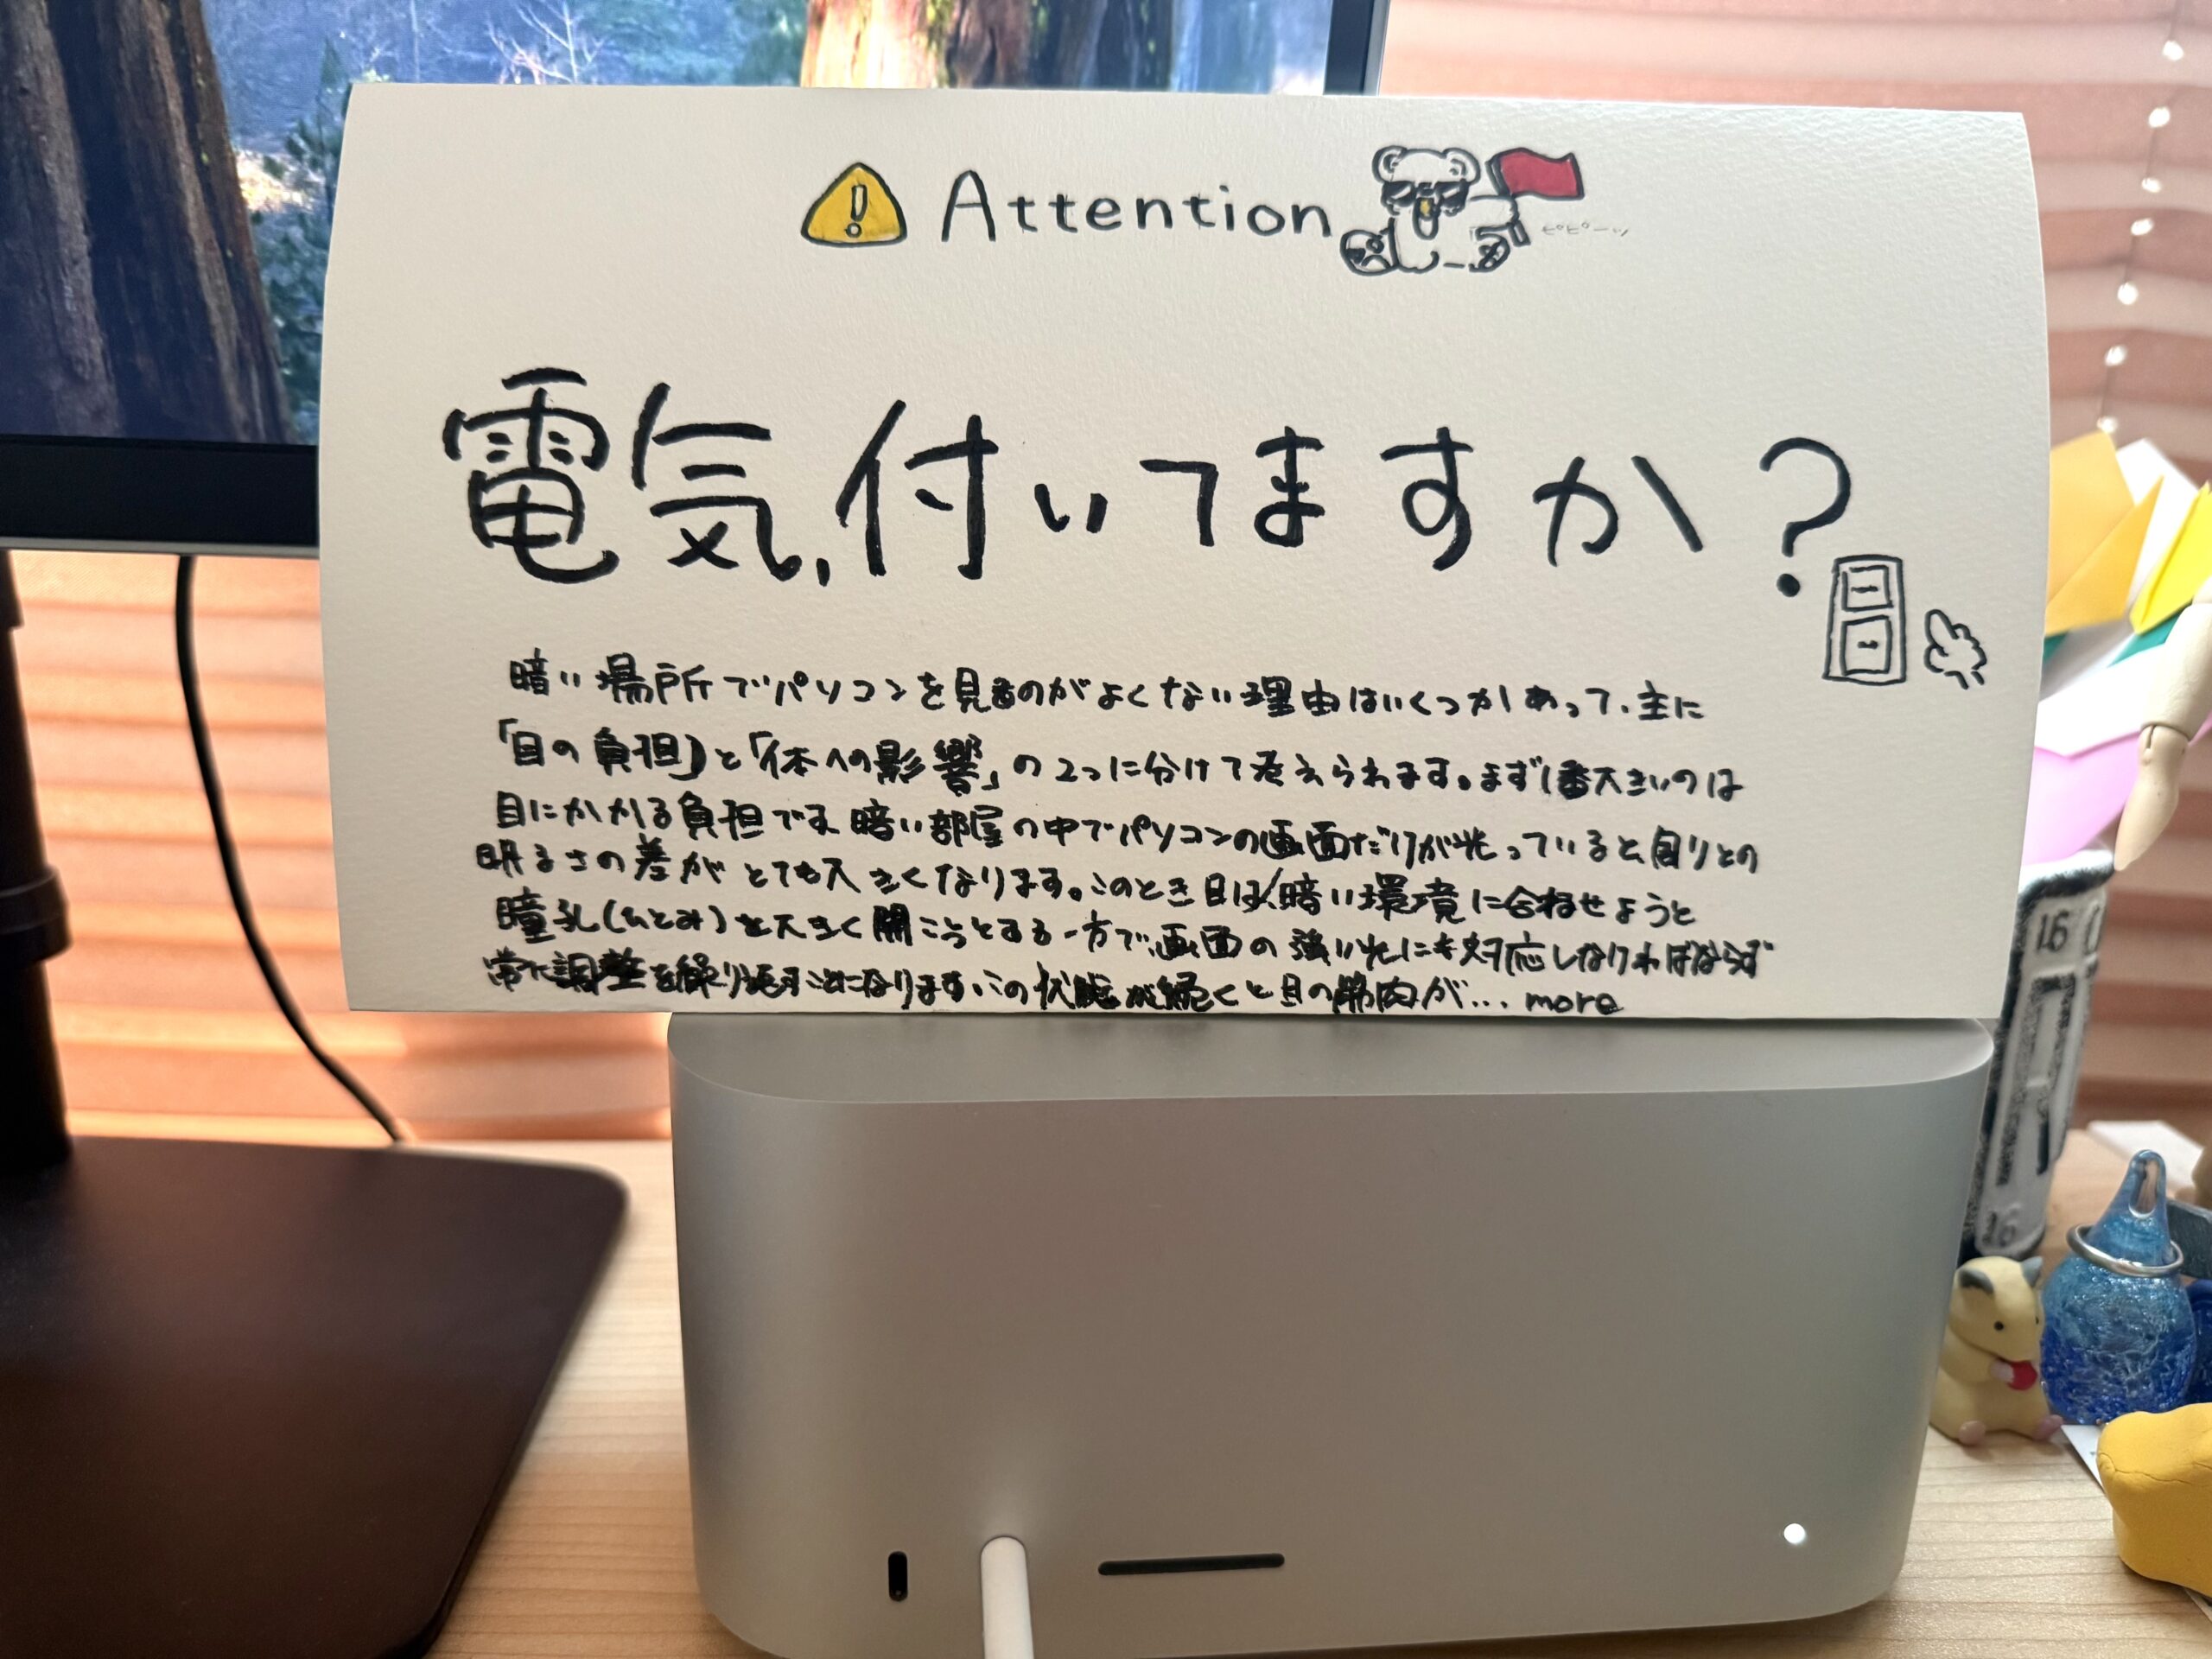 Attention
ピピーッ
電気,付いてますか?
暗い場所でパソコンを見るのがよくない理由はいくつかあって、主に
「目の負担」と「体への影響」の2つに分けて考えられます。まず1番大きいのは
目にかかる負担です。暗い部屋の中でパソコンの画面だけが光っていると、周りとの
明るさの差がとても大きくなります。このとき目は暗い環境に合わせようと
瞳孔(ひとみ)を大きく開こうとする一方で、画面の強い光にも対応しなければならず
常に調整を繰り返すことになります。この状態が続くと目の筋肉が... more
16
16